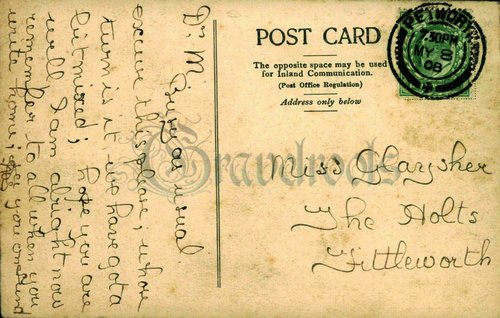 POST CARD
The opposite space may be used
for Inland Communication.
(Post Office Regulation)
Address only below
PETWORTH
7.30PM
MY 8
08
Miss
The Holts
Fittleworth
Dr M.
Busy as usual
excuse this please; whose
turn is it. we have got a
bit mixed; hope you are
well I am alright now
remember to all when you
write home;
Gravelroots